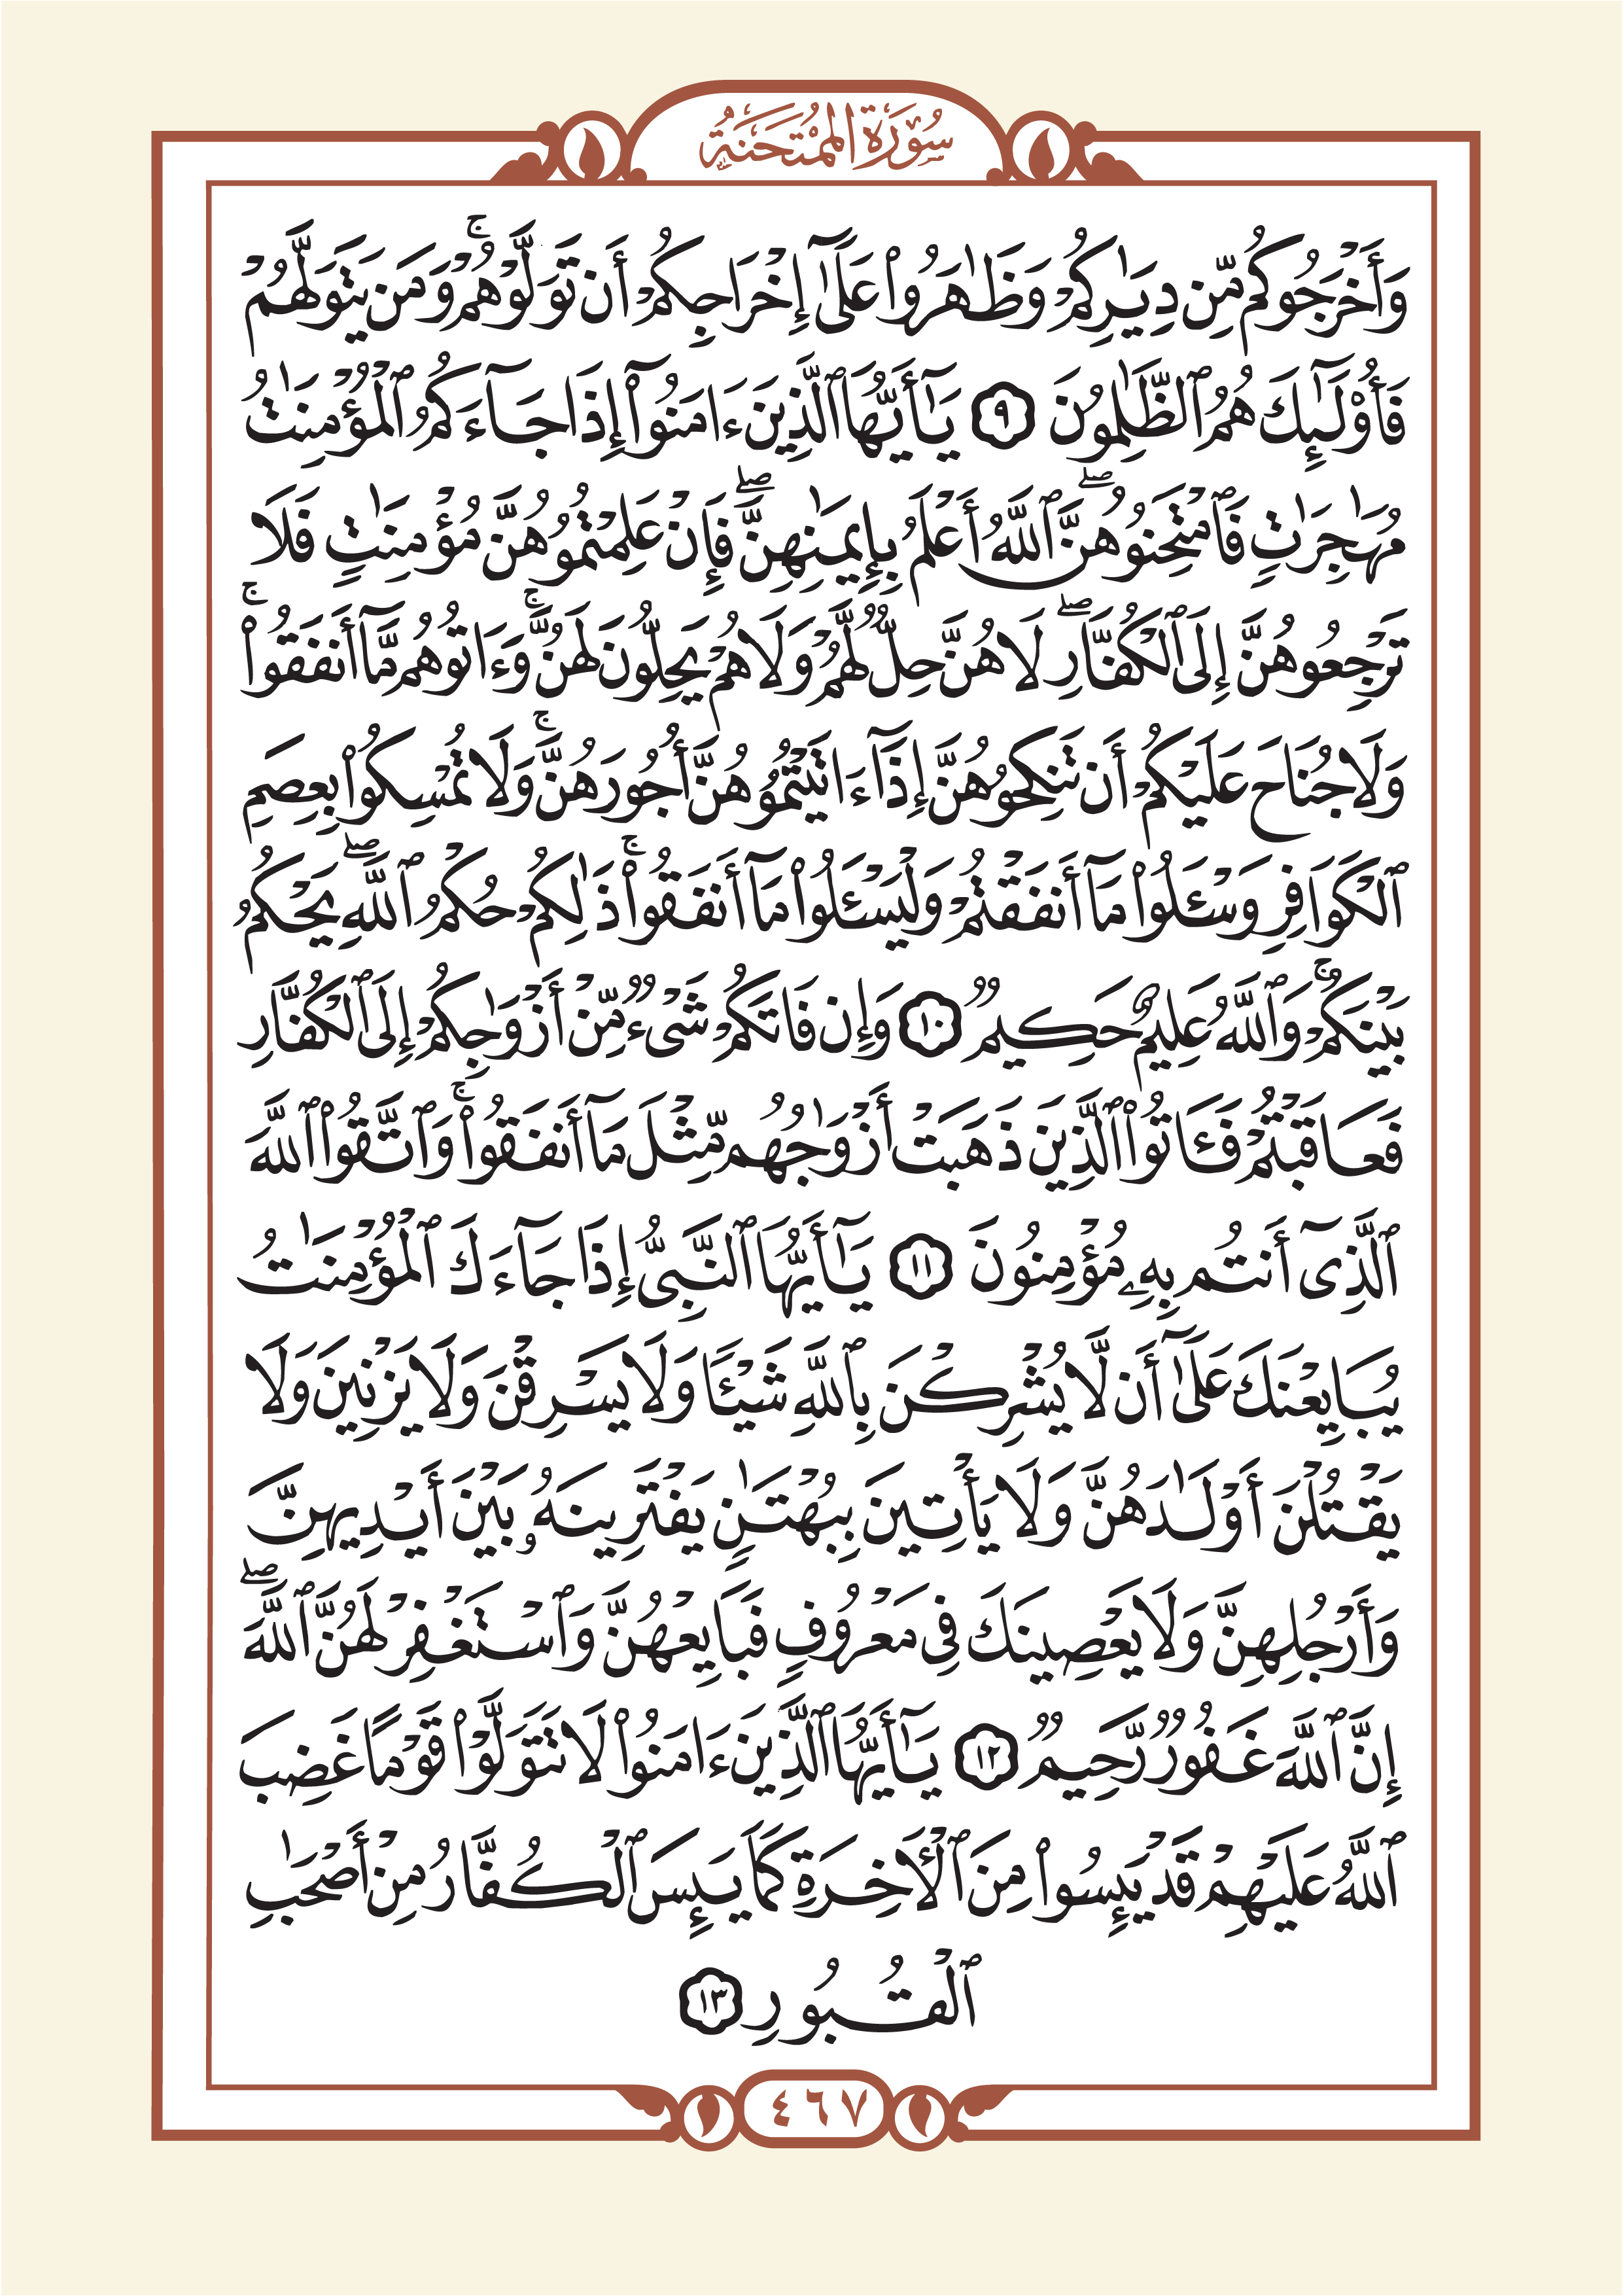 سُورَةُ المُمْتَحَنَةِ
وَأَخْرَجُوكُم مِّن دِيَٰرِكُمْ وَظَٰهَرُوا۟ عَلَىٰٓ إِخْرَاجِكُمْ أَن تَوَلَّوْهُمْ ۚ وَمَن يَتَوَلَّهُمْ
فَأُو۟لَٰٓئِكَ هُمُ ٱلظَّٰلِمُونَ ٩ يَٰٓأَيُّهَا ٱلَّذِينَ ءَامَنُوٓا۟ إِذَا جَآءَكُمُ ٱلْمُؤْمِنَٰتُ
مُهَٰجِرَٰتٍ فَٱمْتَحِنُوهُنَّ ۖ ٱللَّهُ أَعْلَمُ بِإِيمَٰنِهِنَّ ۖ فَإِنْ عَلِمْتُمُوهُنَّ مُؤْمِنَٰتٍ فَلَا
تَرْجِعُوهُنَّ إِلَى ٱلْكُفَّارِ ۖ لَا هُنَّ حِلٌّ لَّهُمْ وَلَا هُمْ يَحِلُّونَ لَهُنَّ ۖ وَءَاتُوهُم مَّآ أَنفَقُوا۟ ۚ
وَلَا جُنَاحَ عَلَيْكُمْ أَن تَنكِحُوهُنَّ إِذَآ ءَاتَيْتُمُوهُنَّ أُجُورَهُنَّ ۚ وَلَا تُمْسِكُوا۟ بِعِصَمِ
ٱلْكَوَافِرِ وَسْـَٔلُوا۟ مَآ أَنفَقْتُمْ وَلْيَسْـَٔلُوا۟ مَآ أَنفَقُوا۟ ۚ ذَٰلِكُمْ حُكْمُ ٱللَّهِ ۖ يَحْكُمُ
بَيْنَكُمْ ۚ وَٱللَّهُ عَلِيمٌ حَكِيمٌ ١٠ وَإِن فَاتَكُمْ شَىْءٌ مِّنْ أَزْوَٰجِكُمْ إِلَى ٱلْكُفَّارِ
فَعَاقَبْتُمْ فَـَٔاتُوا۟ ٱلَّذِينَ ذَهَبَتْ أَزْوَٰجُهُم مِّثْلَ مَآ أَنفَقُوا۟ ۚ وَٱتَّقُوا۟ ٱللَّهَ
ٱلَّذِىٓ أَنتُم بِهِۦ مُؤْمِنُونَ ١١ يَٰٓأَيُّهَا ٱلنَّبِىُّ إِذَا جَآءَكَ ٱلْمُؤْمِنَٰتُ
يُبَايِعْنَكَ عَلَىٰٓ أَن لَّا يُشْرِكْنَ بِٱللَّهِ شَيْـًٔا وَلَا يَسْرِقْنَ وَلَا يَزْنِينَ وَلَا
يَقْتُلْنَ أَوْلَٰدَهُنَّ وَلَا يَأْتِينَ بِبُهْتَٰنٍ يَفْتَرِينَهُۥ بَيْنَ أَيْدِيهِنَّ
وَأَرْجُلِهِنَّ وَلَا يَعْصِينَكَ فِى مَعْرُوفٍ فَبَايِعْهُنَّ وَٱسْتَغْفِرْ لَهُنَّ ٱللَّهَ ۖ
إِنَّ ٱللَّهَ غَفُورٌ رَّحِيمٌ ١٢ يَٰٓأَيُّهَا ٱلَّذِينَ ءَامَنُوا۟ لَا تَتَوَلَّوْا۟ قَوْمًا غَضِبَ
ٱللَّهُ عَلَيْهِمْ قَدْ يَئِسُوا۟ مِنَ ٱلْـَٔاخِرَةِ كَمَا يَئِسَ ٱلْكُفَّارُ مِنْ أَصْحَٰبِ
ٱلْقُبُورِ ١٣
٤٦٧